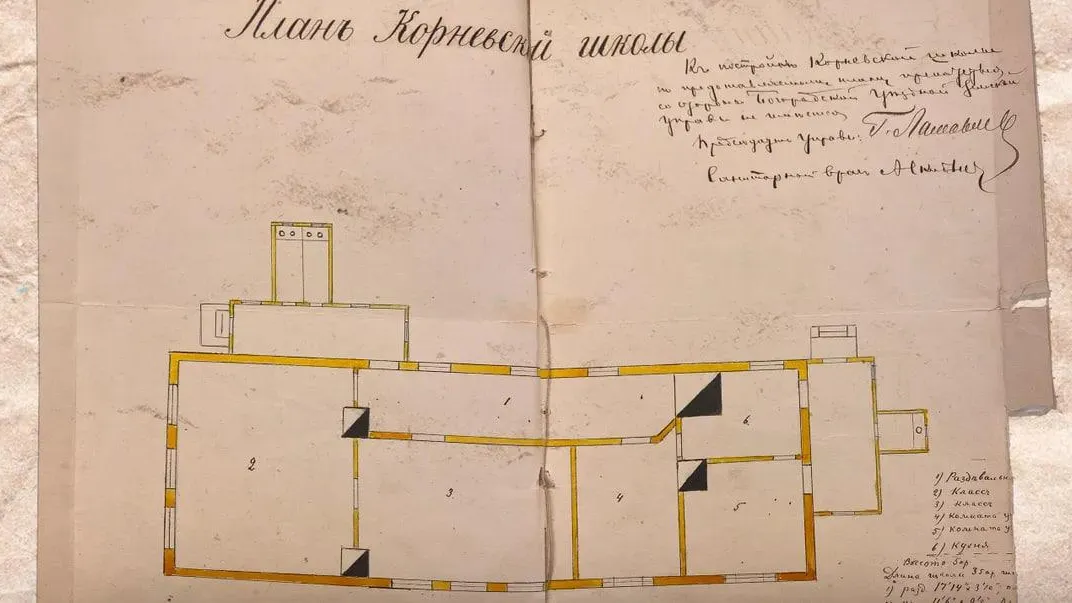 Планъ Корневской школы
Къ постройкѣ Корневской школы
по представленному плану препятствій
со стороны Богородской Уѣздной Земской
Управы не имѣется
Предсѣдатель Управы:
Санитарный врачъ
1
2
3
4
5
6
1) Раздевальн
2) Классъ
3) Классъ
4) Комната у
5) Комната у
6) Кухня
Высота 5 ар
Длина школы 35 ар
1) разд 17'14"